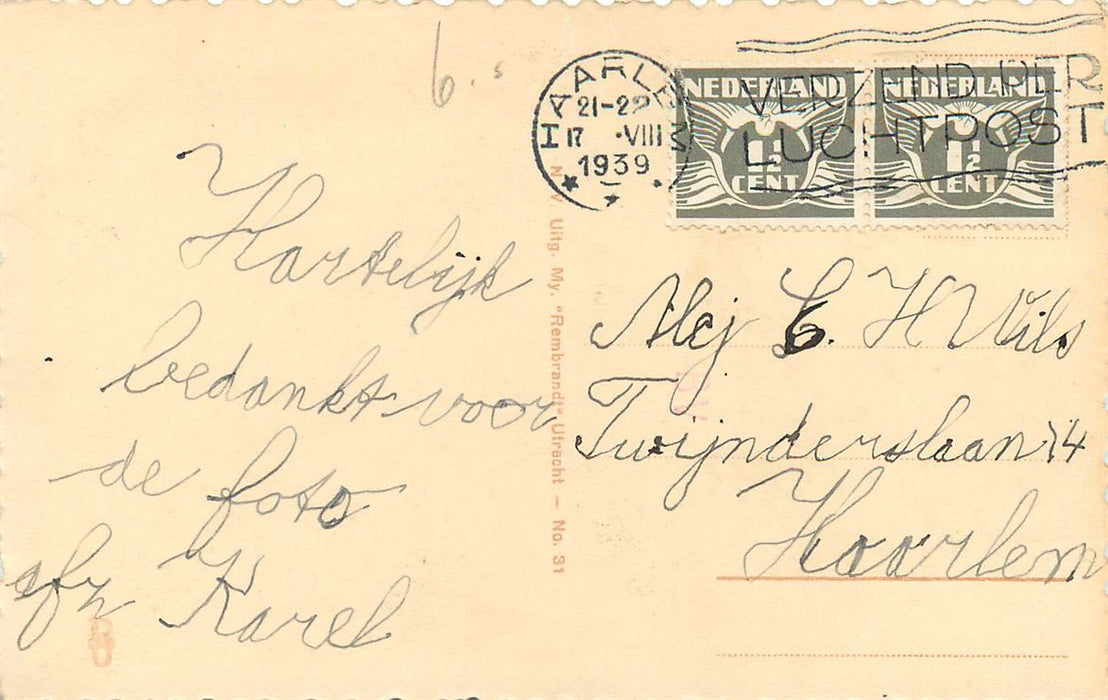 6.
HAARLEM
21-22
17 ·VIII
1939
VERZEND PER
LUCHTPOST
NEDERLAND
1½
CENT
NEDERLAND
1½
CENT
Hartelijk
bedankt voor
de foto
afz Karel
N.V. Uitg. My. "Rembrandt" Utrecht — No. 31
Mej C. H Wils
Twijnderslaan 14
Haarlem